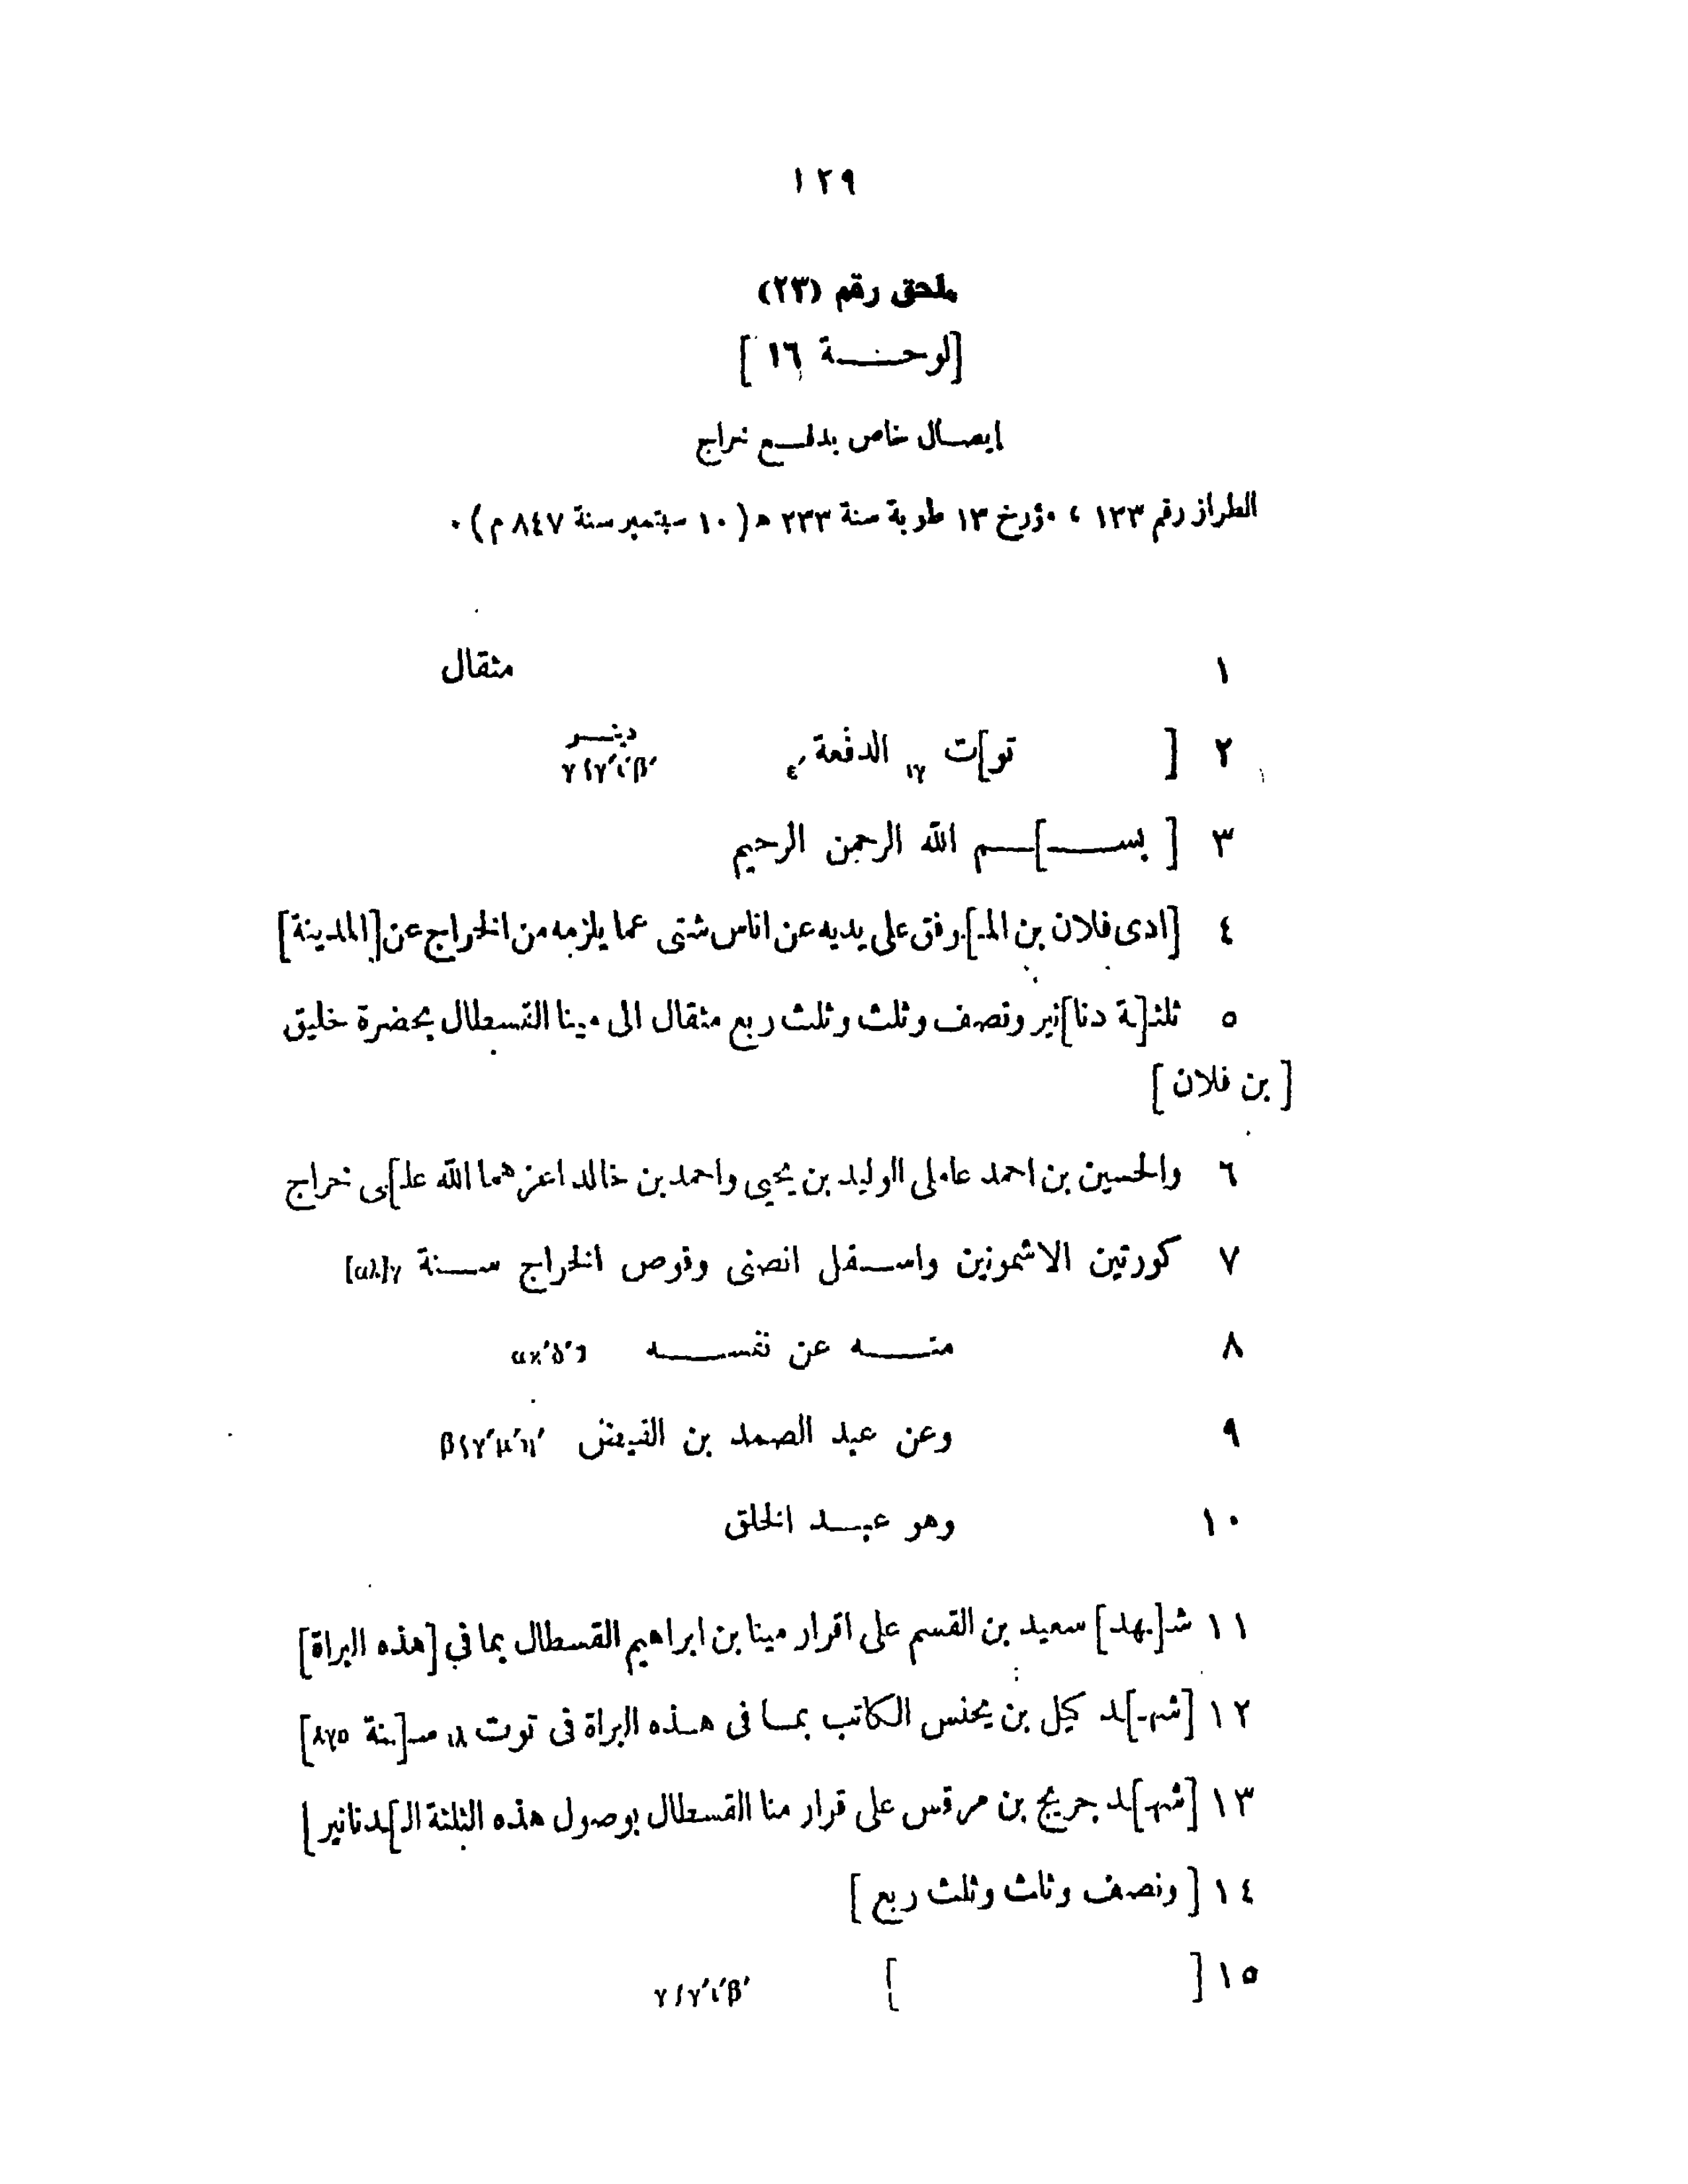 ١٢٩
ملحق رقم (٢٣)
[لوحة ١٦]
إيصال خاص بدفع خراج
الطراز رقم ١٣٣ ، مؤرخ ١٣ طوبة سنة ٢٣٣ ه (١٠ سبتمبر سنة ٨٤٧ م) .
١ مثقال
٢ [ تو]ت ιγ الدفعة ε′ دينر
γ ϛ γ′ι′β′
٣ [بس]م الله الرحمن الرحيم
٤ [ادى فلان بن المـ]رفق على يديه عن اناس شتى عما يلزمه من الخراج عن [المدينة]
٥ ثلثـ[ـة دنا]نير ونصف وثلث وثلث ربع مثقال الى مينا القسطال بحضرة خليق
[بن فلان]
٦ والحسين بن احمد عاملى الوليد بن يحيى واحمد بن خالد اعزهما الله علـ]ـى خراج
٧ كورتين الاشمونين واسفل انصنى وقوص الخراج سنة
٨ منه عن نفسه
٩ وعن عبد الصمد بن الفيض
١٠ وهو عبد الخلق
١١ شـ[ـهد] سعيد بن القسم على اقرار مينا بن ابراهيم القسطال بما في [هذه البراة]
١٢ [شهـ]ـد كيل بن يحنس الكاتب بما فى هذه البراة فى توت ιλ سـ[ـنة λγο]
١٣ [شهـ]ـد جريج بن مرقس على قرار منا القسطال بوصول هذه الثلثة الـ]ـدنانير]
١٤ [ونصف وثلث وثلث ربع]
١٥ [ ] γ ϛ γ′ι′β′